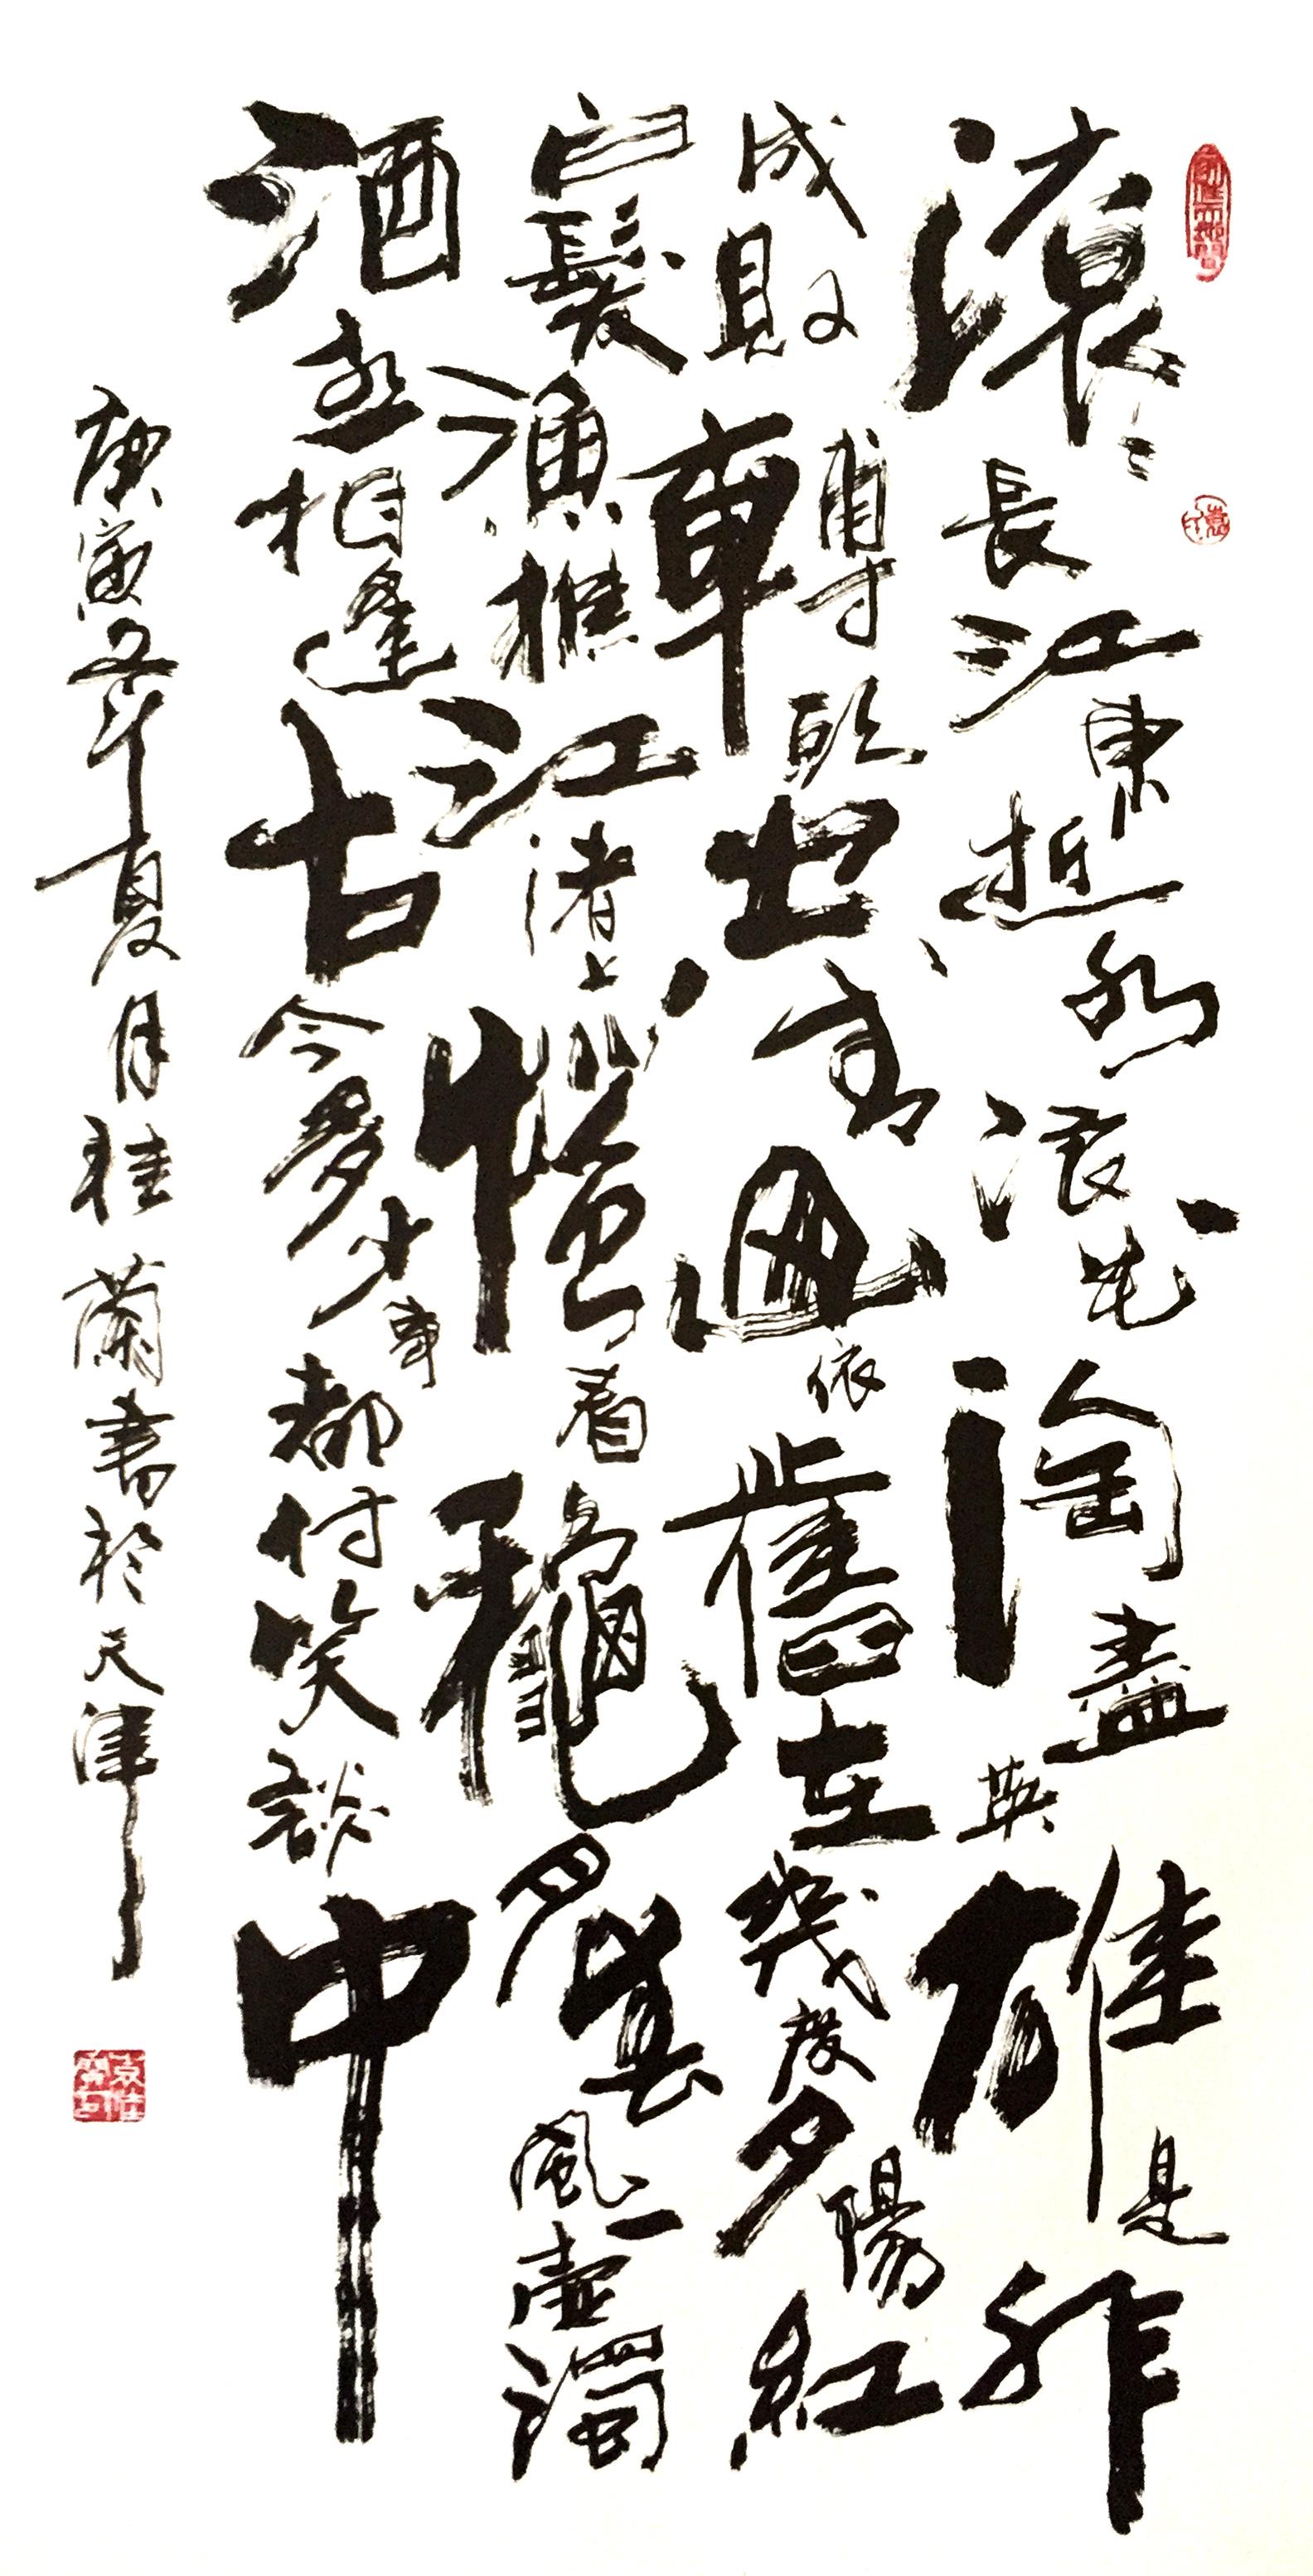 滾〻長江東逝水浪花淘盡英雄是非
成敗轉頭空青山依舊在幾度夕陽紅
白髮漁樵江渚上慣看龝月春風一壺濁
酒喜相逢古今多少事都付笑談中
庚寅之年夏月桂蘭書於天津